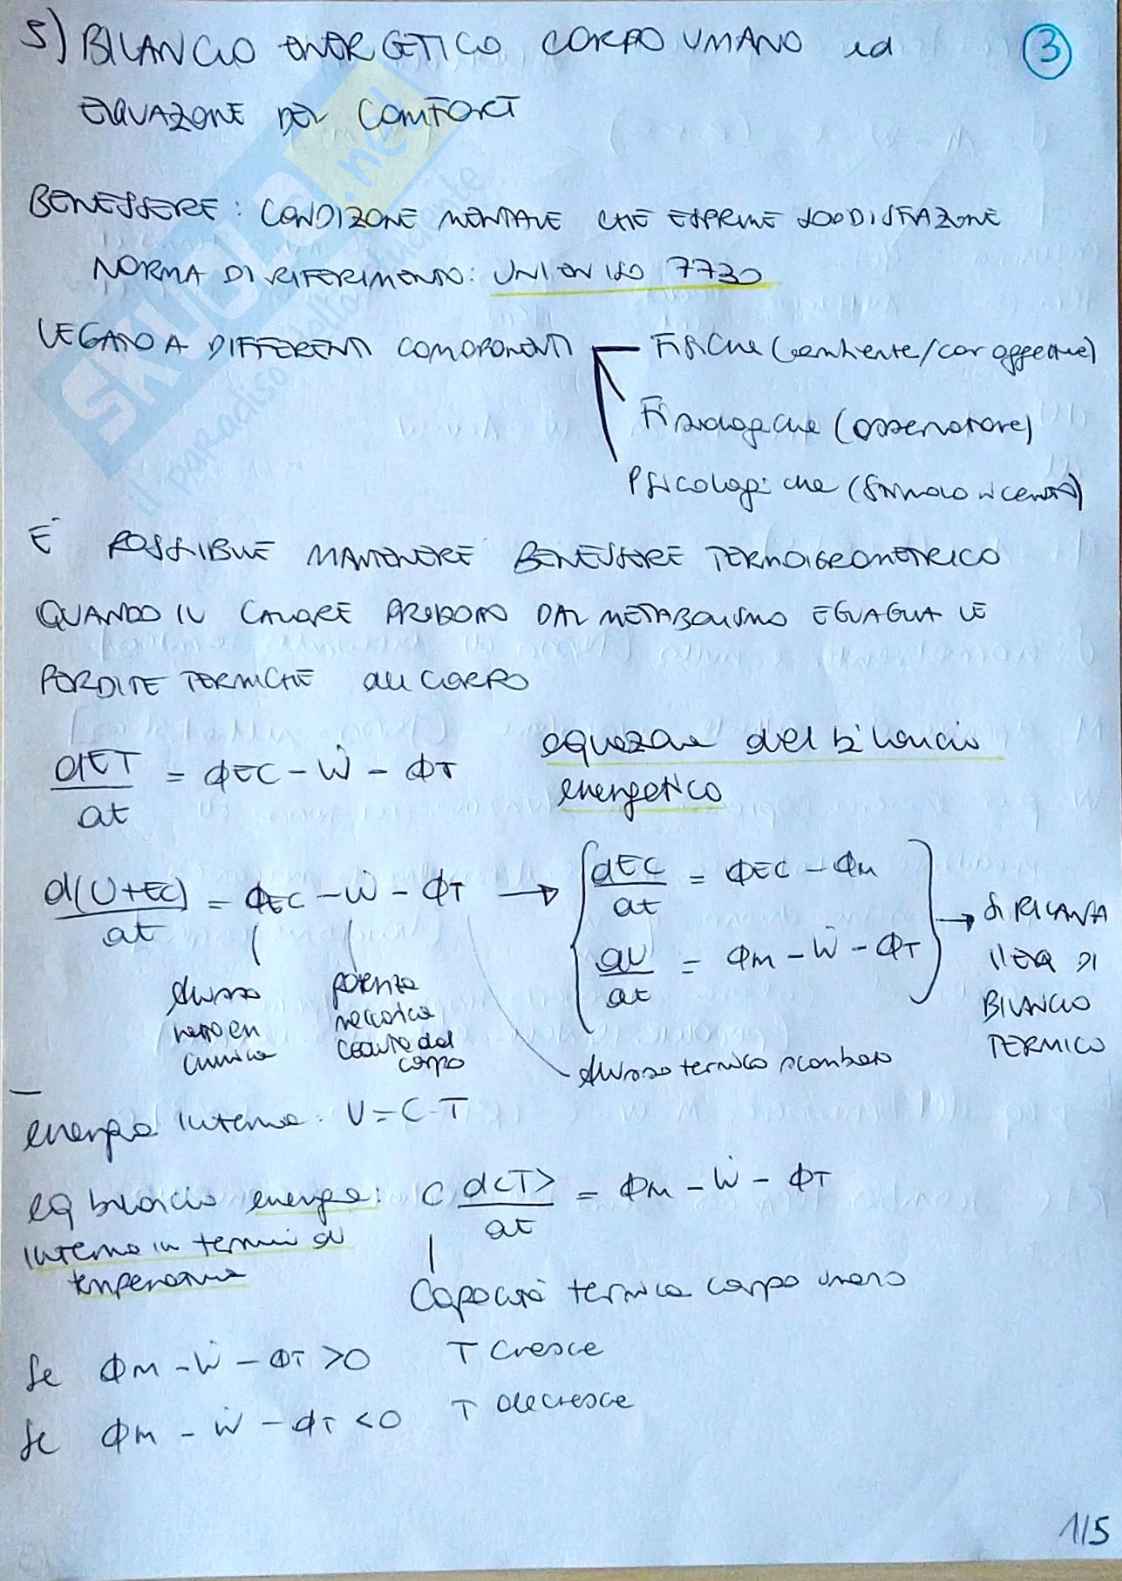 5) BILANCIO ENERGETICO CORPO UMANO ed
3
EQUAZIONE DEL COMFORT
BENESSERE: CONDIZIONE MENTALE CHE ESPRIME SODDISFAZIONE
NORMA DI RIFERIMENTO: UNI EN ISO 7730
LEGATO A DIFFERENTI COMPONENTI
Fisiche (ambiente/car oggettive)
Fisiologiche (osservatore)
Psicologiche (stimolo ricevuto)
E' POSSIBILE MANTENERE BENESSERE TERMOIGROMETRICO
QUANDO IL CALORE PRODOTTO DAL METABOLISMO EGUAGLIA LE
PERDITE TERMICHE del CORPO
dET/dt = ΦEC - Ẇ - ΦT equazione del bilancio
energetico
d(U+EC)/dt = ΦEC - Ẇ - ΦT → { dEC/dt = ΦEC - ΦM
dU/dt = ΦM - Ẇ - ΦT } → SI RICAVA
l'EQ DI
BILANCIO
TERMICO
flusso
netto en
chimica
potenza
meccanica
ceduta dal
corpo
flusso termico scambiato
energia interna: U = C·T
eq bilancio energia: C d<T>/dt = ΦM - Ẇ - ΦT
interna in termini di
temperatura
Capacità termica corpo umano
Se ΦM - Ẇ - ΦT > 0 T cresce
Se ΦM - Ẇ - ΦT < 0 T decresce
1/5
SKUOLA.net
il paradiso dello studente